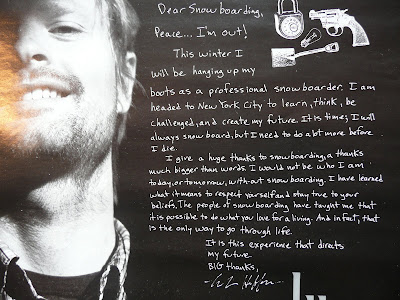 Dear Snowboarding,
Peace.... I'm out!
This winter I
will be hanging up my
boots as a professional snowboarder. I am
headed to New York City to learn, think, be
challenged, and create my future. It is time; I will
always snowboard, but I need to do a lot more before
I die.
I give a huge thanks to snowboarding, a thanks
much bigger than words. I would not be who I am
today, or tomorrow, without snowboarding. I have learned
what it means to respect yourself and stay true to your
beliefs. The people of snowboarding have taught me that
it is possible to do what you love for a living. And in fact, that
is the only way to go through life.
It is this experience that directs
my future.
BIG thanks,